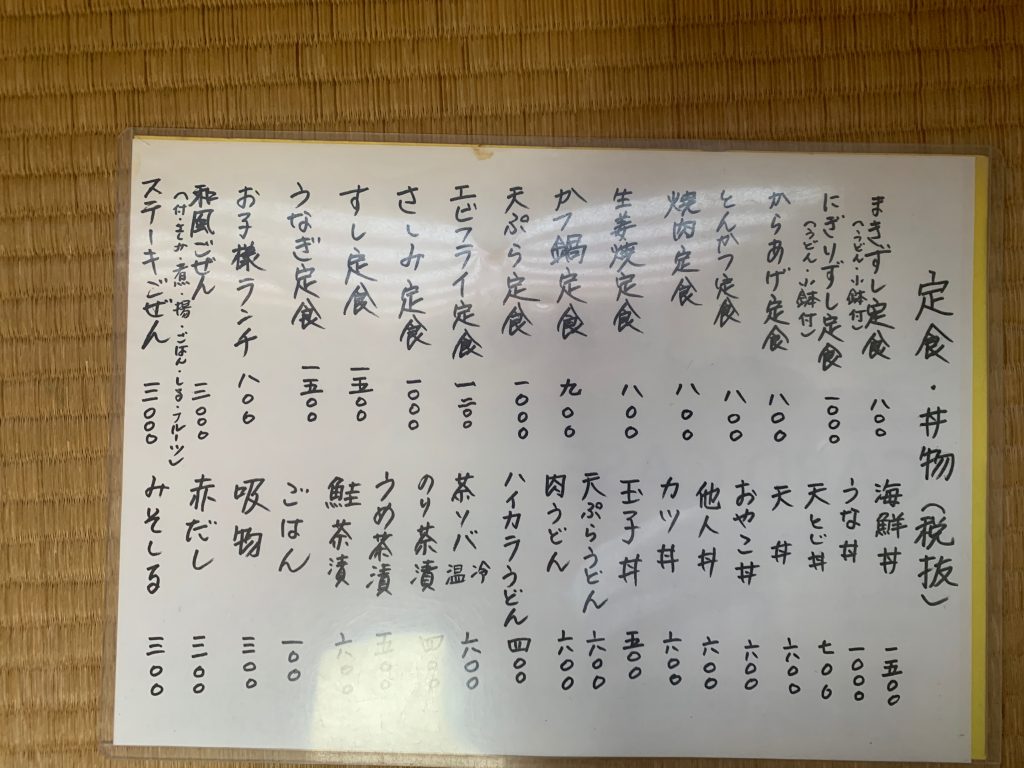 定食・丼物(税抜)
まきずし定食 八〇〇
(うどん・小鉢付)
にぎりずし定食 一〇〇〇
(うどん・小鉢付)
からあげ定食 八〇〇
とんかつ定食 八〇〇
焼肉定食 八〇〇
生姜焼定食 八〇〇
カツ鍋定食 九〇〇
天ぷら定食 一〇〇〇
エビフライ定食 一二〇〇
さしみ定食 一〇〇〇
すし定食 一五〇〇
うなぎ定食 一五〇〇
お子様ランチ 八〇〇
和風ごぜん 三〇〇〇
(付きだし・煮・揚・ごはん・しる・フルーツ)
ステーキごぜん 三〇〇〇
海鮮丼 一五〇〇
うな丼 一〇〇〇
天とじ丼 七〇〇
天丼 六〇〇
おやこ丼 六〇〇
他人丼 六〇〇
カツ丼 六〇〇
玉子丼 五〇〇
天ぷらうどん 六〇〇
肉うどん 六〇〇
ハイカラうどん 四〇〇
茶ソバ 冷 温 六〇〇
のり茶漬 四〇〇
うめ茶漬 五〇〇
鮭茶漬 六〇〇
ごはん 一〇〇
吸物 三〇〇
赤だし 三〇〇
みそしる 三〇〇